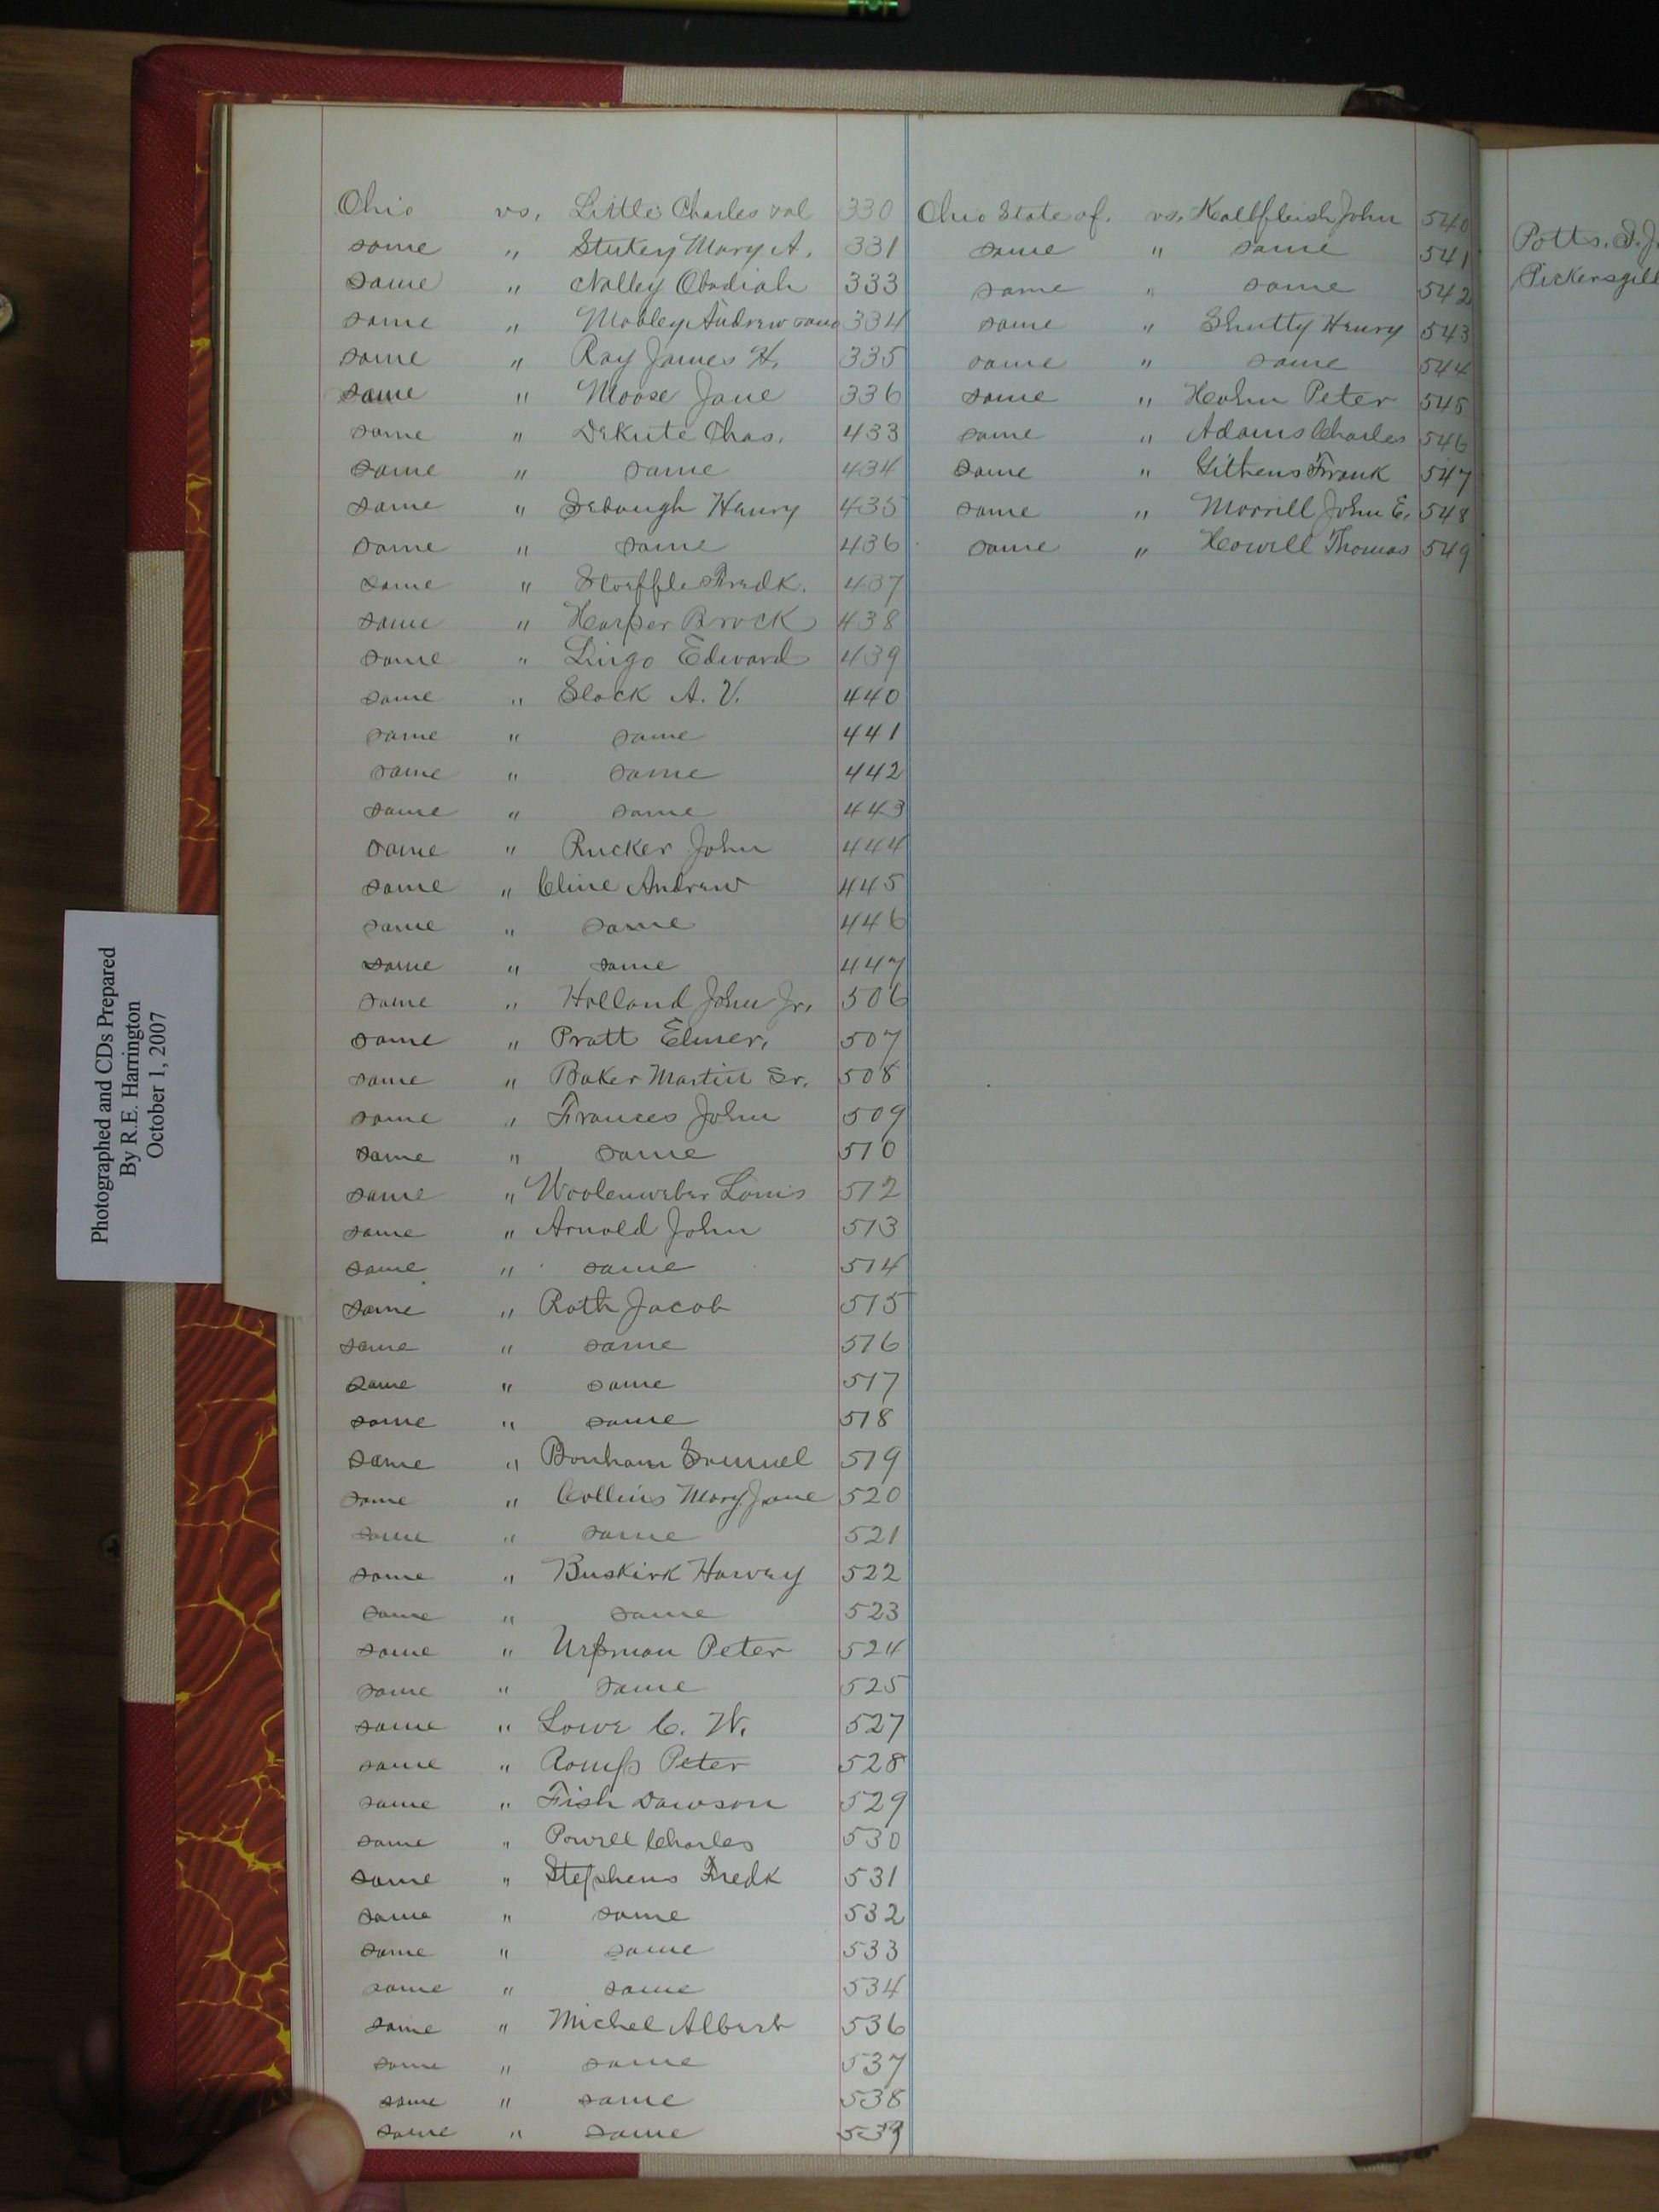 Ohio vs. Little Charles et al 330
same " Stukey Mary A. 331
same " Nalley Obadiah 333
same " Mobley Andrew 334
same " Ray James H. 335
same " Moose Jane 336
same " DeKute Chas. 433
same " same 434
same " Debough Henry 435
same " same 436
same " Stoeffle Fredk. 437
same " Harper Brock 438
same " Lingo Edward 439
same " Slack A. V. 440
same " same 441
same " same 442
same " same 443
same " Rucker John 444
same " Cline Andrew 445
same " same 446
same " same 447
same " Holland John Jr. 506
same " Pratt Elmer, 507
same " Baker Martin Sr. 508
same " Frances John 509
same " same 510
same " Woolenweber Louis 512
same " Arnold John 513
same " same 514
same " Roth Jacob 515
same " same 516
same " same 517
same " same 518
same " Bonham Samuel 519
same " Collins Mary Jane 520
same " same 521
same " Buskirk Harvey 522
same " same 523
same " Urpman Peter 524
same " same 525
same " Lowe C. W. 527
same " Romp Peter 528
same " Fish Dawson 529
same " Powell Charles 530
same " Stephens Fredk 531
same " same 532
same " same 533
same " same 534
same " Michel Albert 536
same " same 537
same " same 538
same " same 539
Ohio State of. vs. Kalbfleish John 540
same " same 541
same " same 542
same " Shutty Henry 543
same " same 544
same " Hohn Peter 545
same " Adams Charles 546
same " Githens Frank 547
same " Morrill John E. 548
same " Howell Thomas 549
Potts.
Pickersgill
Photographed and CDs Prepared
By R.E. Harrington
October 1, 2007